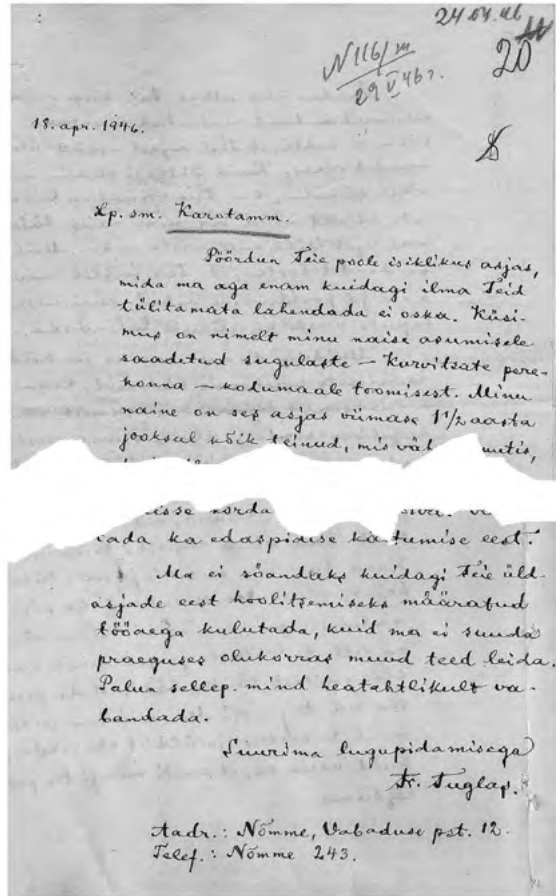 24.04.46
20
N 116/m
29 V 46 г.
18. apr. 1946.
Lp. sm. Karotamm.
Pöördun Teie poole isiklikus asjas,
mida ma aga enam kuidagi ilma Teid
tülitamata lahendada ei oska. Küsi-
mus on nimelt minu naise asumisele
saadetud sugulaste – Kurvitsate pere-
konna – kodumaale toomisest. Minu
naine on ses asjas viimase 1 1/2 aasta
jooksul kõik teinud, mis väh
korda
tada ka edaspidise kaitumise eest.
Ma ei sõandaks kuidagi Teie üld-
asjade eest hoolitsemiseks määratud
tööaega kulutada, kuid ma ei suuda
praeguses olukorras muud teed leida.
Palun sellep. mind heatahtlikult va-
bandada.
Suurima lugupidamisega
Fr. Tuglas.
Aadr.: Nõmme, Vabaduse pst. 12.
Telef.: Nõmme 243.